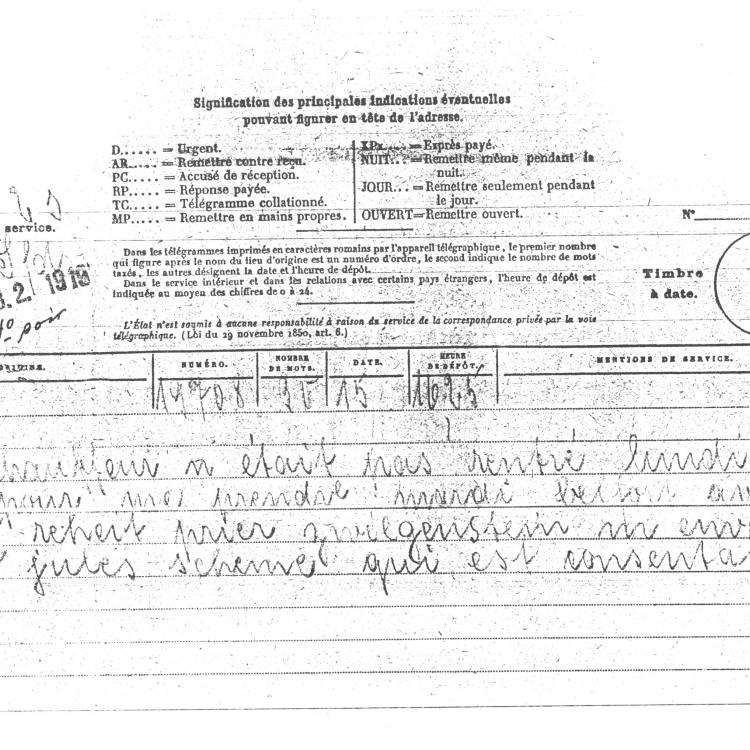 Signification des principales indications éventuelles
pouvant figurer en tête de l'adresse.
D...... = Urgent.
AR..... = Remettre contre reçu.
PC..... = Accusé de réception.
RP..... = Réponse payée.
TC..... = Télégramme collationné.
MP..... = Remettre en mains propres.
XPx.... = Exprès payé.
NUIT... = Remettre même pendant la
nuit.
JOUR... = Remettre seulement pendant
le jour.
OUVERT = Remettre ouvert.
service.
N°
Dans les télégrammes imprimés en caractères romains par l'appareil télégraphique, le premier nombre
qui figure après le nom du lieu d'origine est un numéro d'ordre, le second indique le nombre de mots
taxés, les autres désignent la date et l'heure de dépôt.
Dans le service intérieur et dans les relations avec certains pays étrangers, l'heure de dépôt est
indiquée au moyen des chiffres de 0 à 24.
Timbre
à date.
L'État n'est soumis à aucune responsabilité à raison du service de la correspondance privée par la voie
télégraphique. (Loi du 29 novembre 1850, art. 6.)
NUMÉRO.
NOMBRE
DE MOTS.
DATE.
HEURE
DE DÉPÔT.
MENTIONS DE SERVICE.
15 1625
n était pas rentré lundi
pour me prendre mardi
prier
jules scheme qui est